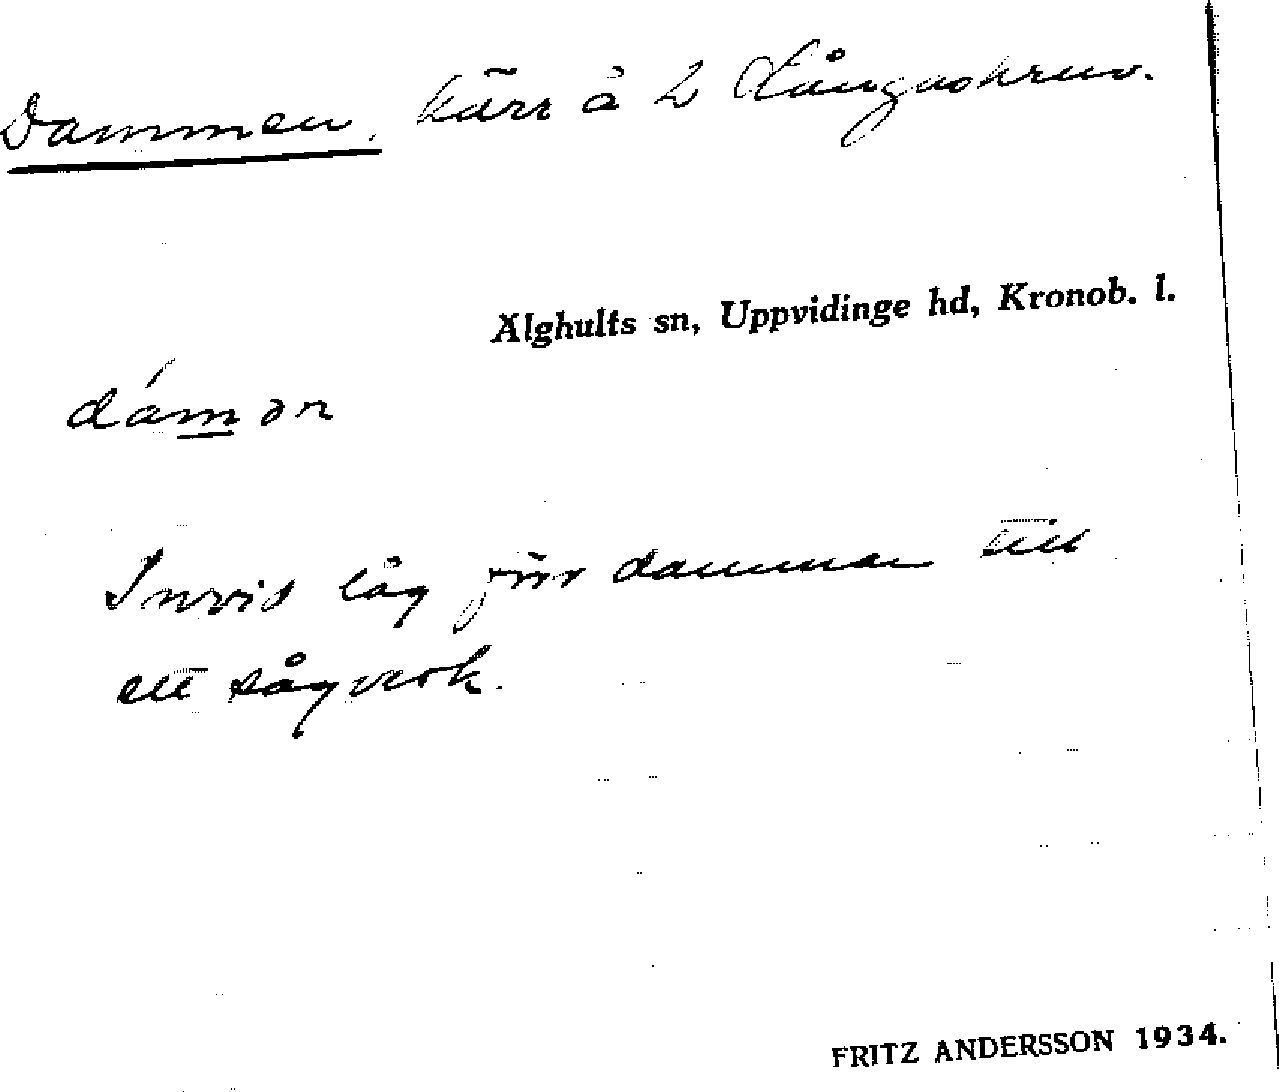 Dammen, kärr å 2 Långaskruv.
Älghults sn, Uppvidinge hd, Kronob. l.
dámər
Invid låg förr dammen till
ett sågverk.
FRITZ ANDERSSON 1934.